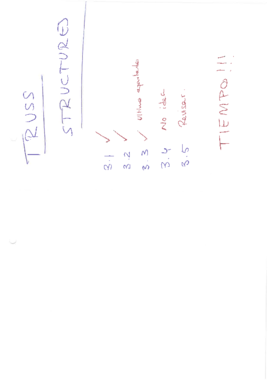 TRUSS
STRUCTURES
3.1 ✓
3.2 ✓
3.3 ✓ último apartado
3.4 No idea
3.5 Revisar
TIEMPO!!!